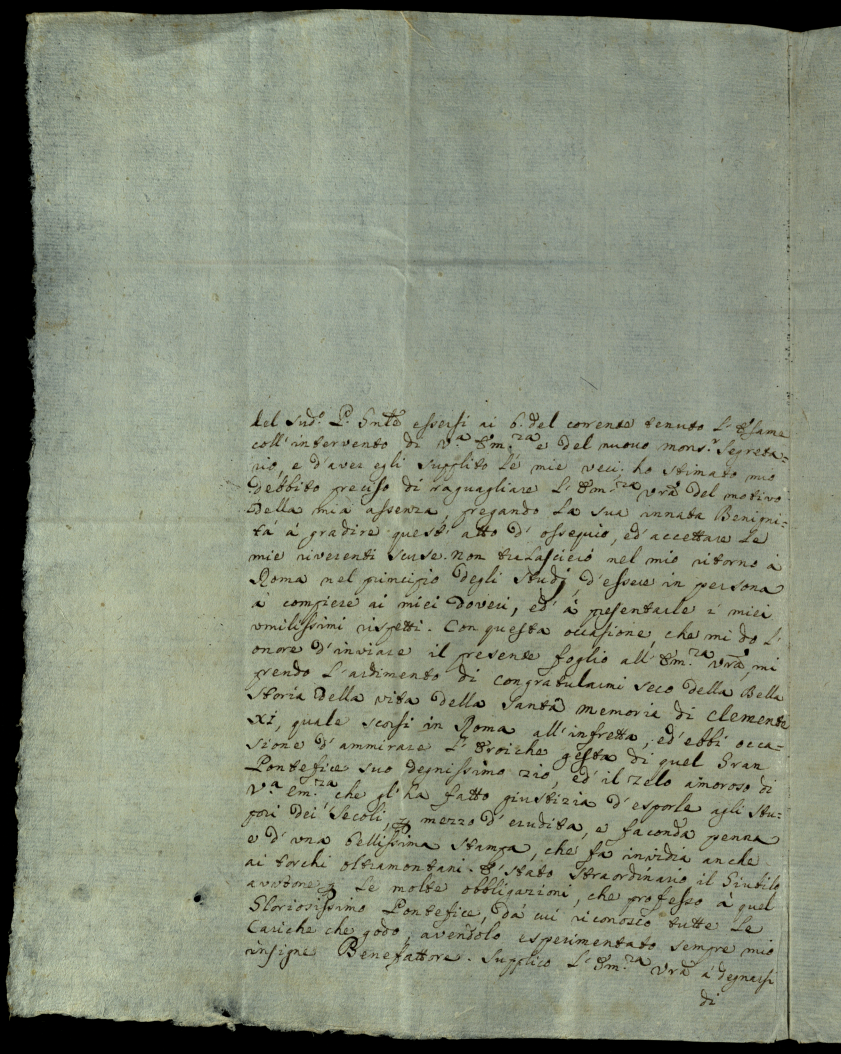 del Sud.º P. Gnle essersi ai 6. del corrente tenuto L'Esame
coll'intervento di V.ª Em.za e del nuovo mons.r Segreta-
rio, e d'aver egli supplito Le mie veci. ho stimato mio
debbito preciso di raguagliare L'Em.za vrã del motivo
della mia assenza, pregando La sua innata Benigni-
tá á gradire quest'atto d'ossequio, ed'accettare Le
mie riverenti scuse. Non tralascieró nel mio ritorno á
Roma nel principio degli Studj, d'essere in persona
á compiere ai miei doveri, ed'á presentarle i miei
vmilissimi rispetti. Con questa occasione, che mi do L'
onore d'inviare il presente foglio all'Em.za vrã, mi
prendo L'ardimento di congratularmi seco della Bella
Storia della vita della Santa memoria di Clemente
XI, quale scorsi in Roma all'infretta, ed'ebbi occa-
sione d'ammirare L'Eroiche gesta di quel Gran
Pontefice suo degnissimo zio, ed'il zelo amoroso di
V.ª em.za che gl'ha fatto giustizia d'esporle agli stu-
pori dei Secoli, p mezzo d'erudita, e faconda penna
e d'vna bellissima stampa, che fa invidia anche
ai torchi oltramontani. É stato straordinario il Giubilo
avutone p Le molte obbligazioni, che professo á quel
Gloriosissimo Pontefice, dá cui riconosco tutte Le
Cariche che godo, avendolo esperimentato sempre mio
insigne Benefattore. Supplico L'Em.za vrã á degnarsi
di